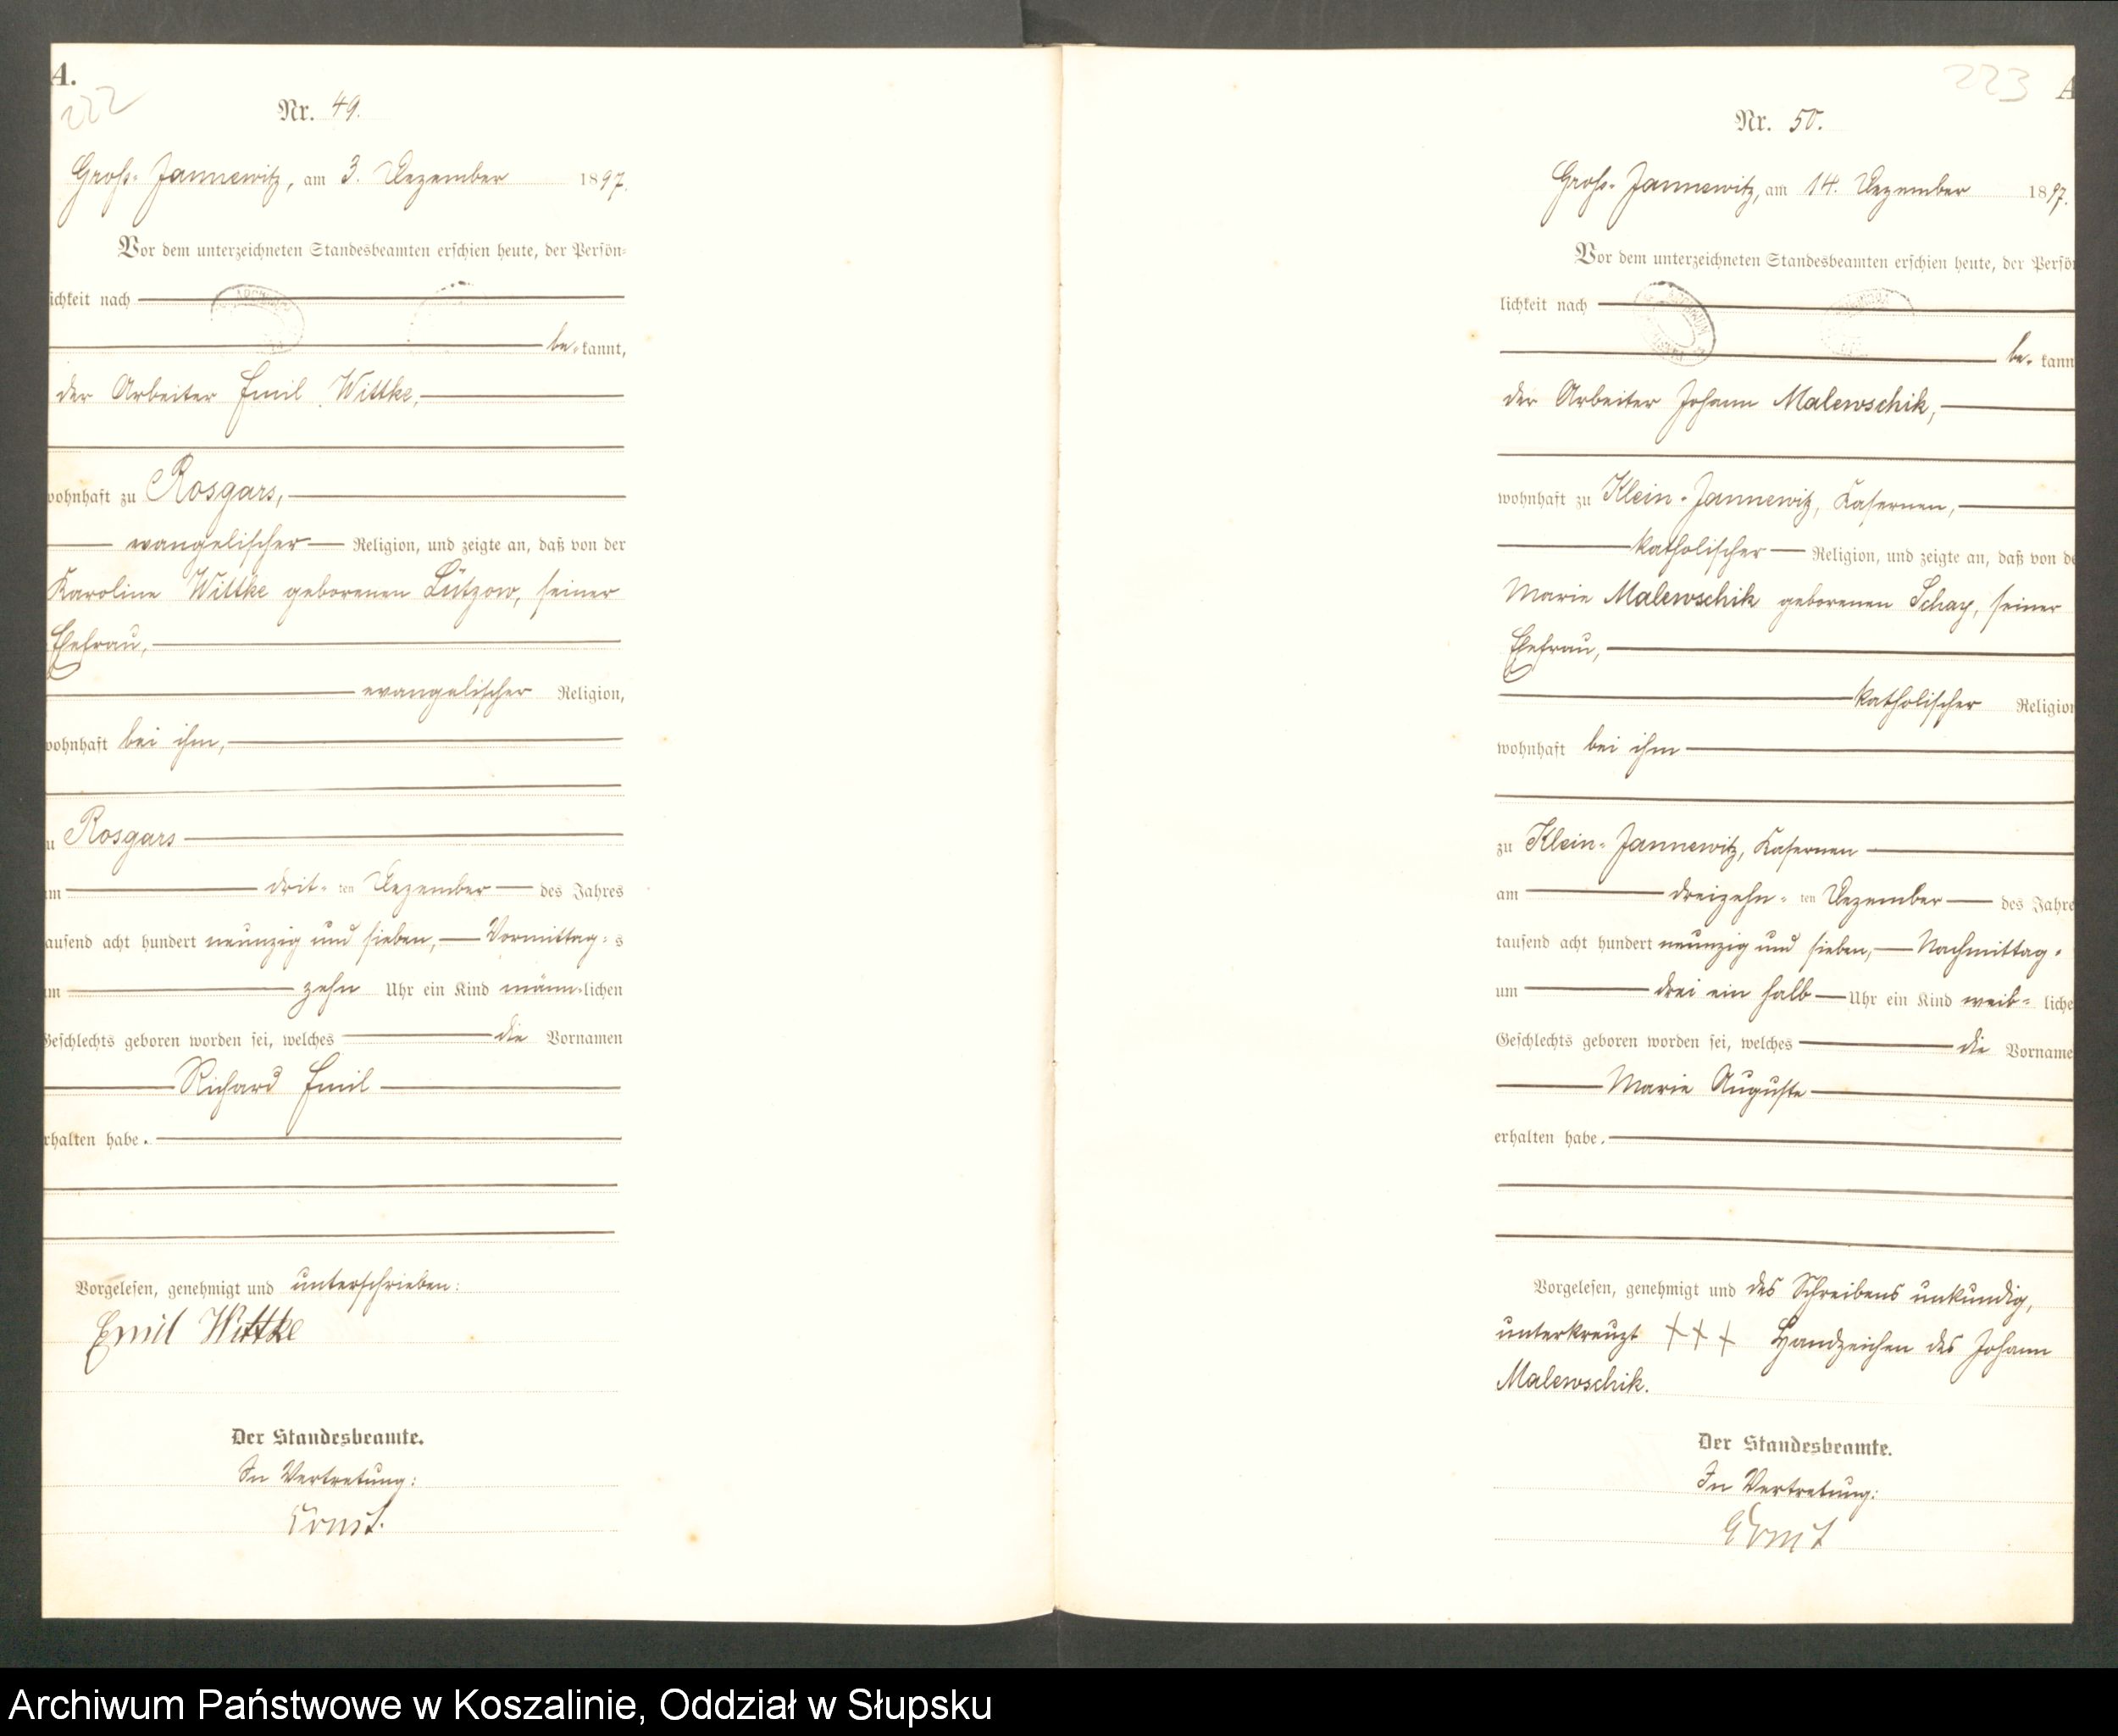 A.
222
Nr. 49.
Groß-Jannewitz, am 3. Dezember 1897.
Vor dem unterzeichneten Standesbeamten erschien heute, der Persön-
ichkeit nach
be-kannt,
der Arbeiter Emil Wittke,
wohnhaft zu Rosgars,
evangelischer Religion, und zeigte an, daß von der
Karoline Wittke geborenen Lützow, seiner
Ehefrau,
evangelischer Religion,
wohnhaft bei ihm,
zu Rosgars
am drit-ten Dezember des Jahres
tausend acht hundert neunzig und sieben, Vormittag-s
um zehn Uhr ein Kind männ-lichen
Geschlechts geboren worden sei, welches die Vornamen
Richard Emil
erhalten habe.
Vorgelesen, genehmigt und unterschrieben:
Emil Wittke
Der Standesbeamte.
In Vertretung:
Ernst.
223
A
Nr. 50.
Groß-Jannewitz, am 14. Dezember 1897.
Vor dem unterzeichneten Standesbeamten erschien heute, der Persön
lichkeit nach
be-kann
der Arbeiter Johann Malewschik,
wohnhaft zu Klein-Jannewitz, Kasernen,
katholischer Religion, und zeigte an, daß von de
Marie Malewschik geborenen Schay, seiner
Ehefrau,
katholischer Religion
wohnhaft bei ihm
zu Klein-Jannewitz, Kasernen
am dreizehn-ten Dezember des Jahre
tausend acht hundert neunzig und sieben, Nachmittag-
um drei ein halb Uhr ein Kind weib-liche
Geschlechts geboren worden sei, welches die Vorname
Marie Auguste
erhalten habe.
Vorgelesen, genehmigt und des Schreibens unkundig,
unterkreuzt +++ Handzeichen des Johann
Malewschik.
Der Standesbeamte.
In Vertretung:
Ernst
Archiwum Państwowe w Koszalinie, Oddział w Słupsku